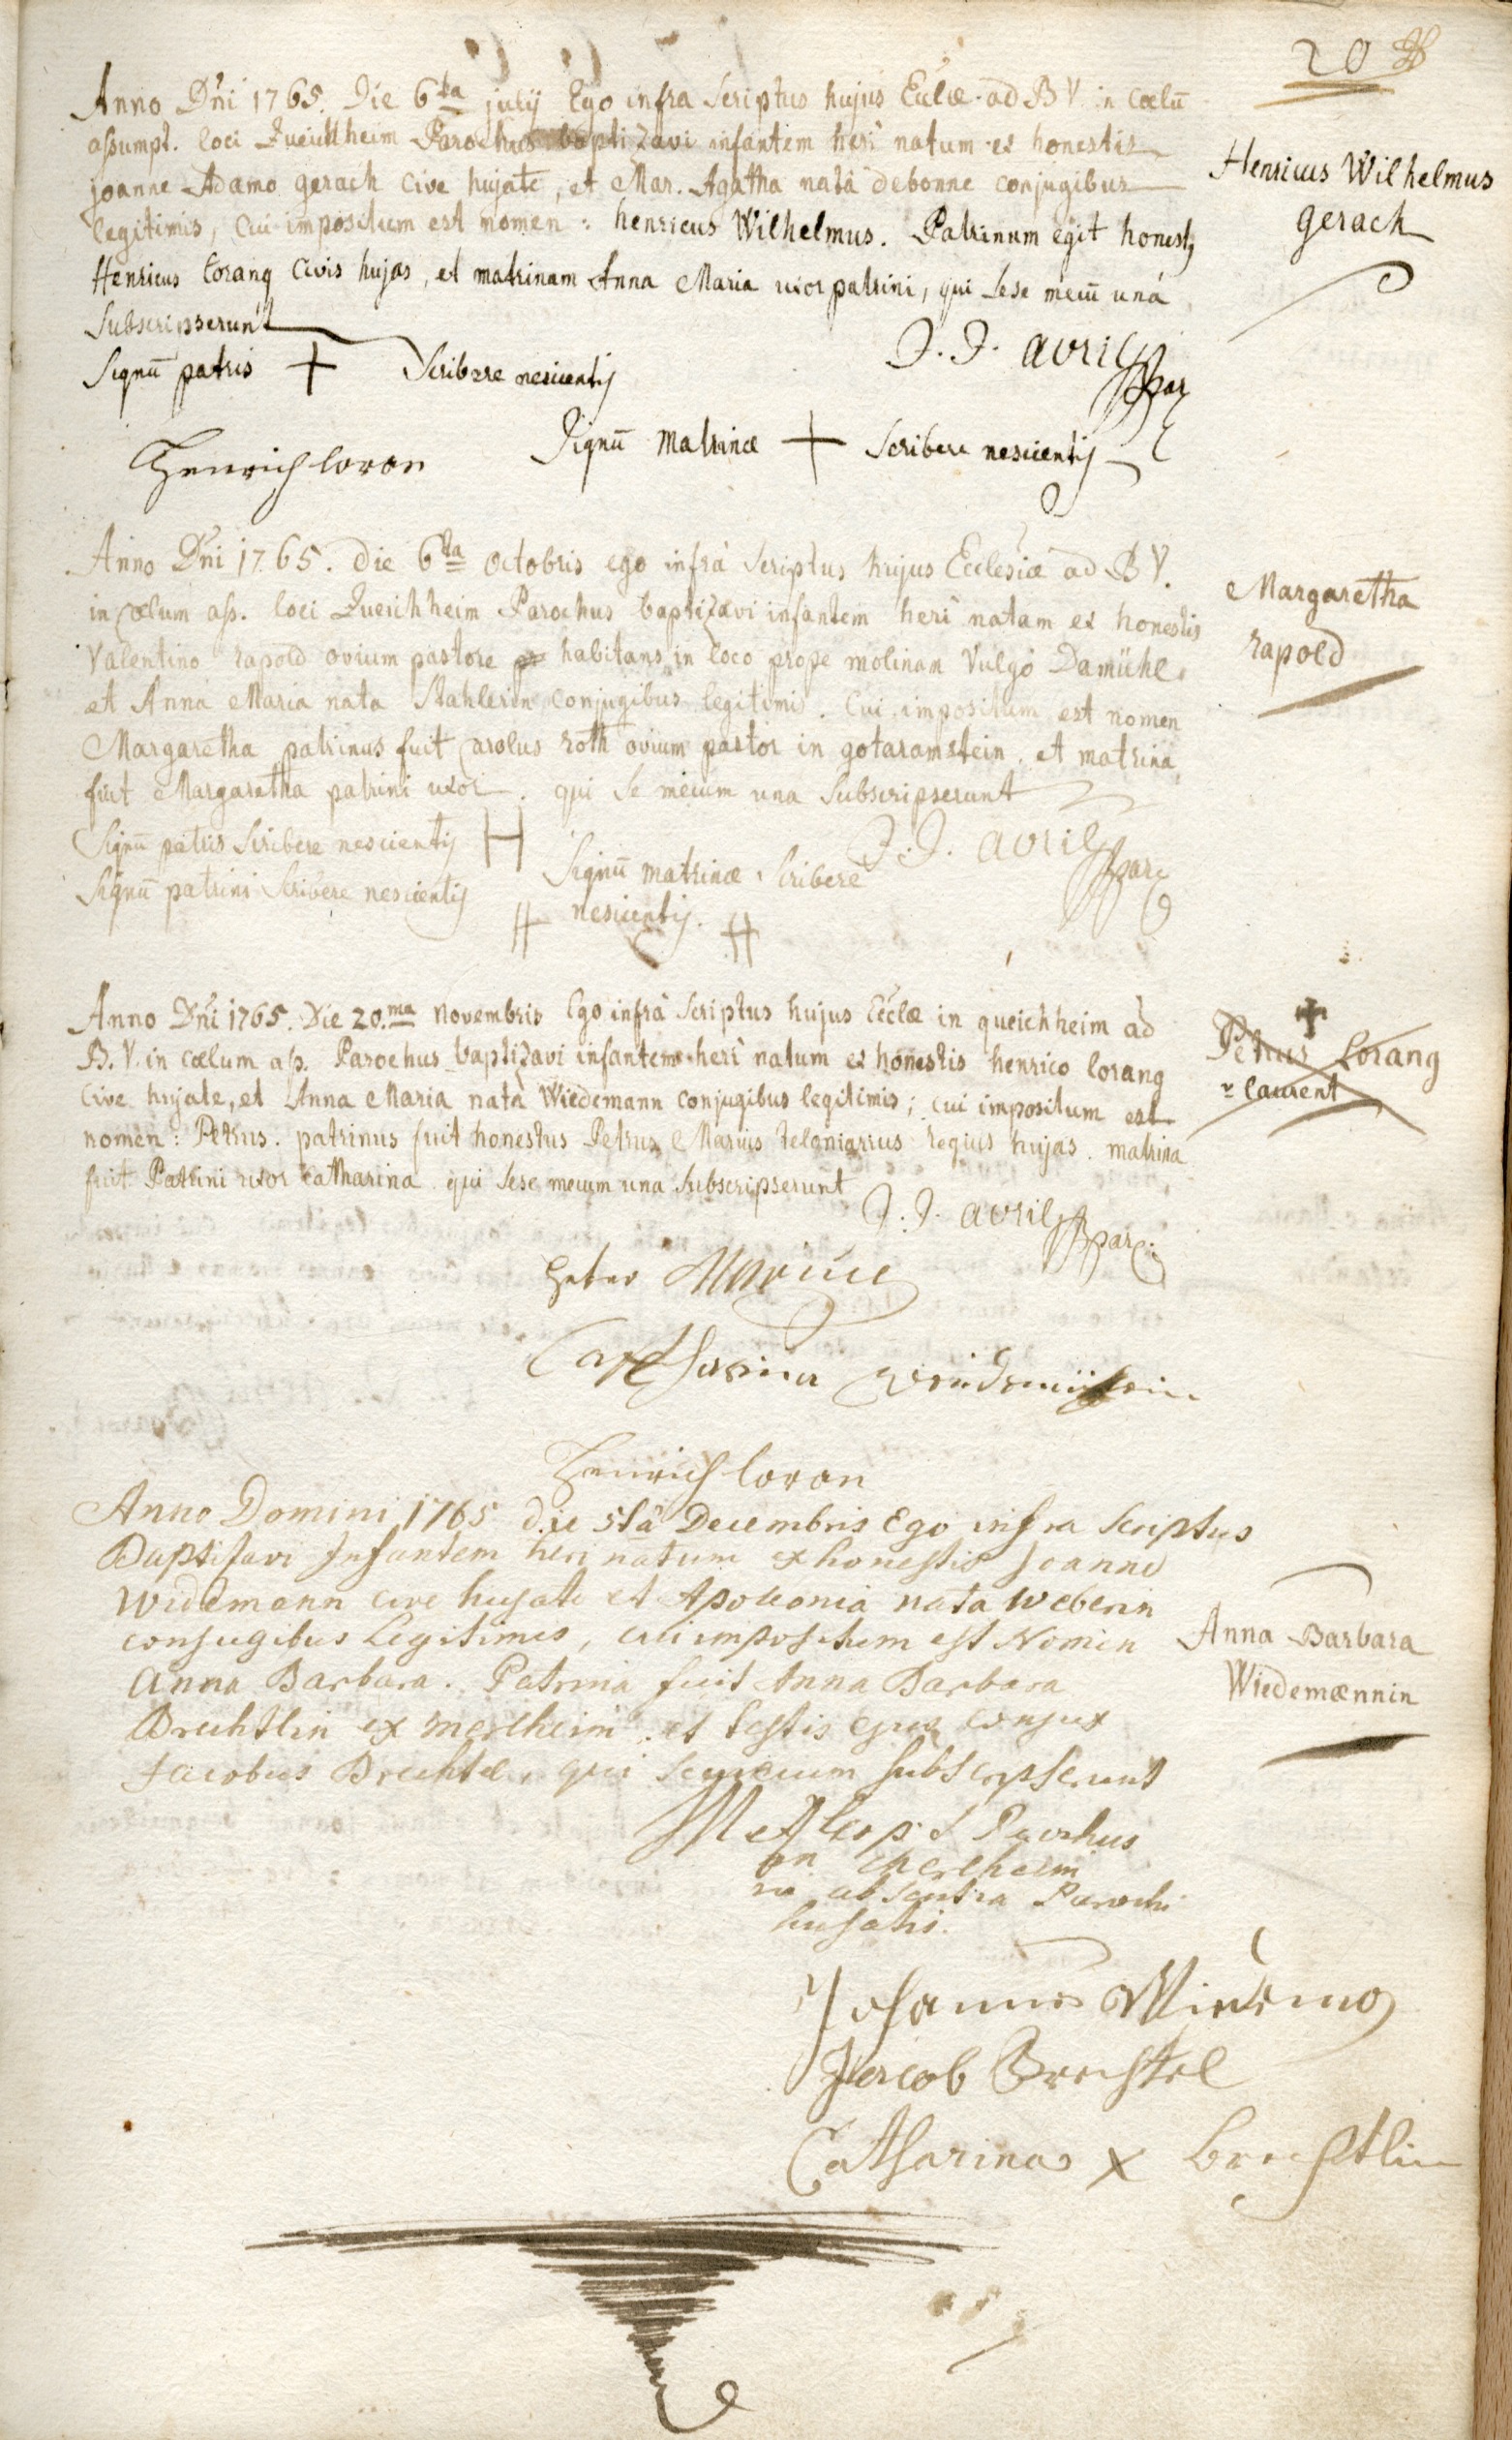 20
Anno Dñi 1765. Die 6ta julij Ego infra Scriptus hujus Eclæ. ad B V. in Cœlũ
assumpt. loci Queichheim Parochus baptizavi infantem herî natum ex honestis
joanne Adamo gerach Cive hujate, et Mar. Agatha natâ debonne conjugibus
legitimis, Cui impositum est nomen : henricus Wilhelmus. Patrinum egit honestq
Henricus lorang Civis hujas, et matrinam Anna Maria uxor patrini, qui Sese mecũ unâ
Subscripserunt
Henricus Wilhelmus
gerach
J. J. avril par
Signũ patris + Scribere nescientis
Henrich loran
Signũ Matrinæ + Scribere nescientis
Anno Dñi 1765. Die 6ta Octobris ego infrà Scriptus hujus Ecclesiæ ad B V.
in Cœlum ass. loci Queichheim Parochus baptizavi infantem herî natam ex honestis
Valentino rapold ovium pastore habitans in loco prope molinam Vulgò Damühl
et Anna Maria nata Stahlerin conjugibus legitimis. Cui impositum est nomen
Margaretha patrinus fuit Carolus roth ovium pastor in gotaramstein. et matrina
fuit Margaretha patrini uxor. qui Se mecum una Subscripserunt
Margaretha
rapold
J. J. avril par
Signũ patris Scribere nescientis H
Signũ patrini Scribere nescientis #
Signũ matrinæ Scribere
nescientis. #
Anno Dñi 1765. Die 20.ma Novembris Ego infrà Scriptus hujus Ecclæ in queichheim ad
B. V. in cœlum ass. Parochus baptizavi infantem herî natum ex honestis henrico lorang
Cive hujate, et Anna Maria natà Wiedemann conjugibus legitimis; cui impositum est
nomen : Petrus. patrinus fuit honestus Petrus Marius teloniarius regius hujas. matrina
fuit Patrini uxor Catharina qui Sese mecum una Subscripserunt
+
Petrus Lorang
laurent
J. J. avril par.
Peter
Catharina
Henrich loran
Anno Domini 1765 die 5tâ Decembris Ego infra Scriptus
Baptisavi Infantem heri natum ex honestis Joanne
Widemann cive hujate et Apollonia nata Weberin
conjugibus Legitimis, cui impositum est Nomen
Anna Barbara. Patrina fuit Anna Barbara
Brechtlin ex merlheim. et testis ejus conjux
Jacobus Brechtel, qui se mecum subscripserunt
Anna Barbara
Wiedemænnin
Parochus
in Merlheim
in absentia Parochi
hujatis.
Johannes
Jacob Brechtel
Catharina x brechtlin